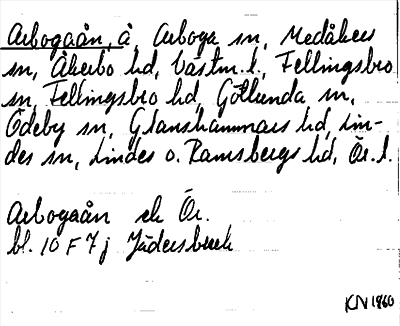 Arbogaån, å, Arboga sn, Medåkers
sn, Åkerbo hd, Västm. l., Fellingsbro
sn, Fellingsbro hd, Götlunda sn,
Ödeby sn, Glanshammars hd, Lin-
des sn, Lindes o. Ramsbergs hd, Ör. l.
Arbogaån ek Ör.
bl. 10 F 7 j Jädersbruk
KN 1960